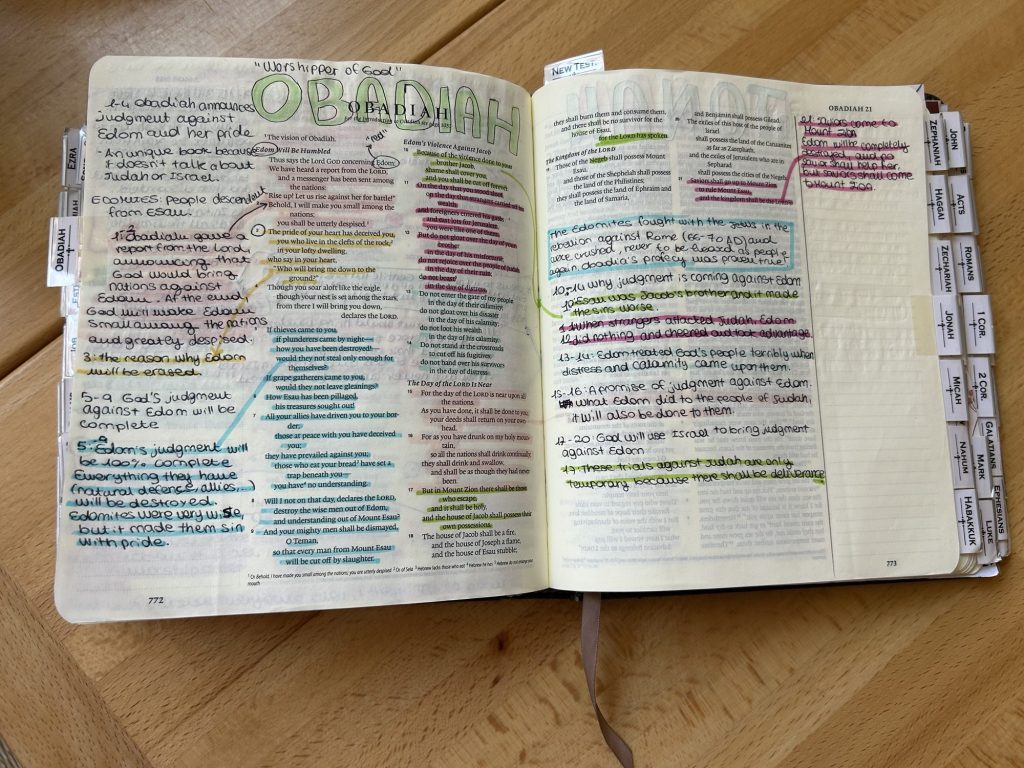 "Worshipper of God"
OBADIAH
OBADIAH
See the Introduction to Obadiah on page
1-4 Obadiah announces
judgment against
Edom and her pride
· An unique book because
it doesn't talk about
Judah or Israel.
EDOMITES: people descended
from Esau.
1-2: Obadiah gave a
report from the Lord
announcing that
God would bring
nations against
Edom. At the end
God will make Edom
small among the nations
and greatly despised.
3: the reason why Edom
will be erased.
5-9 God's judgment
against Edom will be
complete
5-9: Edom's judgment will
be 100% complete
Everything they have
(natural defense, allies..)
will be destroyed.
Edomites were very wise,
but it made them sin
with pride.
772
¹The vision of Obadiah.
"red"
Edom Will Be Humbled
Thus says the Lord GOD concerning Edom:
We have heard a report from the LORD,
and a messenger has been sent among
the nations:
"Rise up! Let us rise against her for battle!"
2 Behold, I will make you small among the
nations;
you shall be utterly despised.
3 The pride of your heart has deceived you,
you who live in the clefts of the rock,
in your lofty dwelling,
who say in your heart,
"Who will bring me down to the
ground?"
4 Though you soar aloft like the eagle,
though your nest is set among the stars,
from there I will bring you down,
declares the LORD.
5 If thieves came to you,
if plunderers came by night—
how you have been destroyed!—
would they not steal only enough for
themselves?
If grape gatherers came to you,
would they not leave gleanings?
6 How Esau has been pillaged,
his treasures sought out!
7 All your allies have driven you to your bor-
der;
those at peace with you have deceived
you;
they have prevailed against you;
those who eat your bread have set a
trap beneath you—
you have no understanding.
8 Will I not on that day, declares the LORD,
destroy the wise men out of Edom,
and understanding out of Mount Esau?
9 And your mighty men shall be dismayed,
O Teman,
so that every man from Mount Esau
will be cut off by slaughter.
Edom's Violence Against Jacob
10 Because of the violence done to your
brother Jacob,
shame shall cover you,
and you shall be cut off forever.
11 On the day that you stood aloof,
on the day that strangers carried off his
wealth
and foreigners entered his gates
and cast lots for Jerusalem,
you were like one of them.
12 But do not gloat over the day of your
brother
in the day of his misfortune;
do not rejoice over the people of Judah
in the day of their ruin;
do not boast
in the day of distress.
13 Do not enter the gate of my people
in the day of their calamity;
do not gloat over his disaster
in the day of his calamity;
do not loot his wealth
in the day of his calamity.
14 Do not stand at the crossroads
to cut off his fugitives;
do not hand over his survivors
in the day of distress.
The Day of the LORD Is Near
15 For the day of the LORD is near upon all
the nations.
As you have done, it shall be done to you;
your deeds shall return on your own
head.
16 For as you have drunk on my holy moun-
tain,
so all the nations shall drink continually;
they shall drink and swallow,
and shall be as though they had never
been.
17 But in Mount Zion there shall be those
who escape,
and it shall be holy,
and the house of Jacob shall possess their
own possessions.
18 The house of Jacob shall be a fire,
and the house of Joseph a flame,
and the house of Esau stubble;
¹ Or Behold, I have made you small among the nations; you are utterly despised ² Or Sela ³ Hebrew lacks those who eat ⁴ Hebrew he has ⁵ Hebrew Do not enlarge your
mouth
they shall burn them and consume them,
and there shall be no survivor for the
house of Esau,
for the LORD has spoken.
The Kingdom of the LORD
19 Those of the Negeb shall possess Mount
Esau,
and those of the Shephelah shall possess
the land of the Philistines;
they shall possess the land of Ephraim and
the land of Samaria,
and Benjamin shall possess Gilead.
20 The exiles of this host of the people of
Israel
shall possess the land of the Canaanites
as far as Zarephath,
and the exiles of Jerusalem who are in
Sepharad
shall possess the cities of the Negeb.
21 Saviors shall go up to Mount Zion
to rule Mount Esau,
and the kingdom shall be the LORD's.
OBADIAH 21
Mount Zion
Edom will be completely
destroyed, and no
savior shall help her,
but saviors shall come
to Mount Zion.
The Edomites fought with the Jews in the
rebellion against Rome (66-70 AD) and
were crushed, never to be heard as people
again. Obadia's profecy was proven true
10-14 why judgment is coming against Edom
10: Esau was Jacob's brother and it made
the sins worse.
11: When strangers attacked Judah, Edom
12: did nothing and cheered and took advantage.
13-14: Edom treated God's people terribly when
distress and calamity came upon them.
15-16: A promise of judgment against Edom.
what Edom did to the people of Judah,
it will also be done to them.
17-20: God will use Israel to bring judgment
against Edom
17: These trials against Judah are only
temporary because there shall be deliverance
773
NEW TEST.
EZRA
OBADIAH
ZEPHANIAH
HAGGAI
ZECHARIAH
JONAH
MICAH
NAHUM
HABAKKUK
JOHN
ACTS
ROMANS
1 COR.
2 COR.
GALATIANS
MARK
EPHESIANS
LUKE